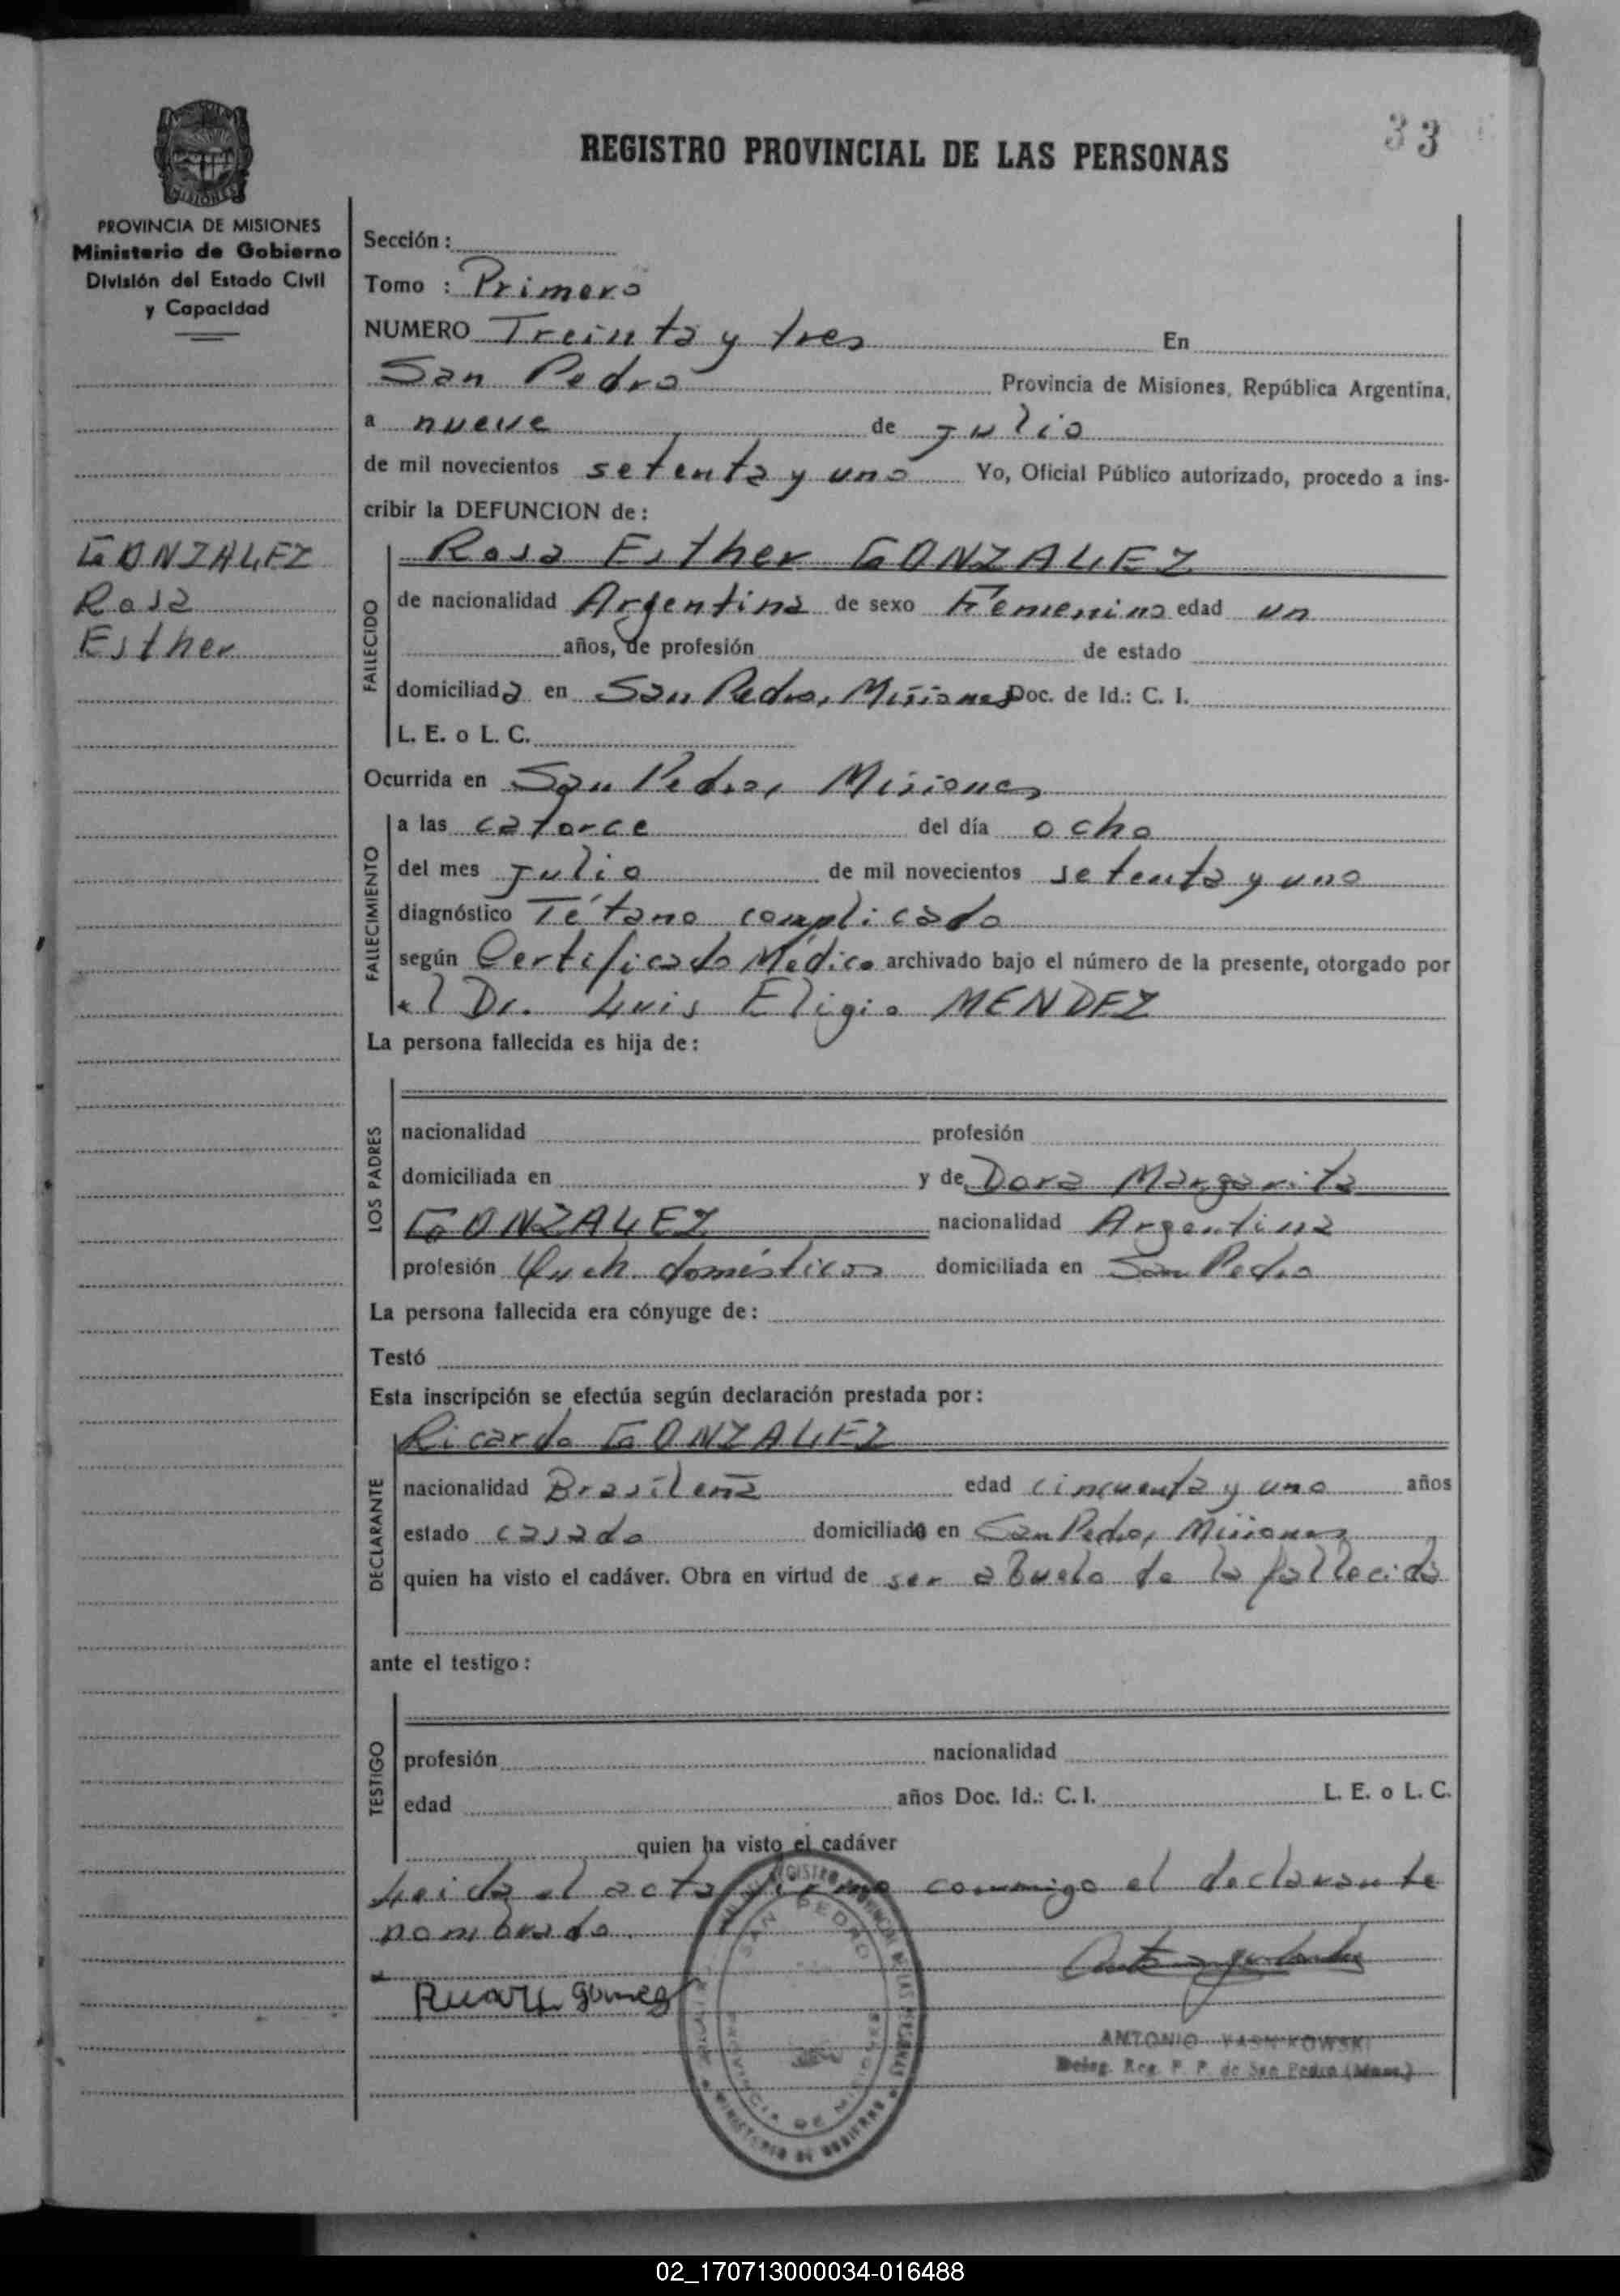 33
REGISTRO PROVINCIAL DE LAS PERSONAS
MISIONES
PROVINCIA DE MISIONES
Ministerio de Gobierno
División del Estado Civil
y Capacidad
GONZALEZ
Rosa
Esther
Sección :
Tomo : Primero
NUMERO Treinta y tres En
San Pedro Provincia de Misiones, República Argentina,
a nueve de julio
de mil novecientos setenta y uno Yo, Oficial Público autorizado, procedo a ins-
cribir la DEFUNCION de :
FALLECIDO
Rosa Esther GONZALEZ
de nacionalidad Argentina de sexo Femenino edad un
años, de profesión de estado
domiciliada en San Pedro, Misiones Doc. de Id.: C. I.
L. E. o L. C.
Ocurrida en San Pedro, Misiones
FALLECIMIENTO
a las catorce del día ocho
del mes julio de mil novecientos setenta y uno
diagnóstico Tétano complicado
según Certificado Médico archivado bajo el número de la presente, otorgado por
el Dr. Luis Eligio MENDEZ
La persona fallecida es hija de :
LOS PADRES
nacionalidad profesión
domiciliada en y de Dora Margarita
GONZALEZ nacionalidad Argentina
profesión Queh. domésticos domiciliada en San Pedro
La persona fallecida era cónyuge de :
Testó
Esta inscripción se efectúa según declaración prestada por :
DECLARANTE
Ricardo GONZALEZ
nacionalidad Brasileña edad cincuenta y uno años
estado casado domiciliado en San Pedro, Misiones
quien ha visto el cadáver. Obra en virtud de ser abuelo de la fallecida
ante el testigo :
TESTIGO
profesión nacionalidad
edad años Doc. Id.: C. I. L. E. o L. C.
quien ha visto el cadáver
Leida el acta firma conmigo el declarante
nombrado.
REGISTRO PROVINCIAL DE LAS PERSONAS
SAN PEDRO
PROVINCIA DE MISIONES
MINISTERIO DE GOBIERNO
ANTONIO YASNIKOWSKI
Deleg. Reg. P. P. de San Pedro (Mnes.)
02_170713000034-016488